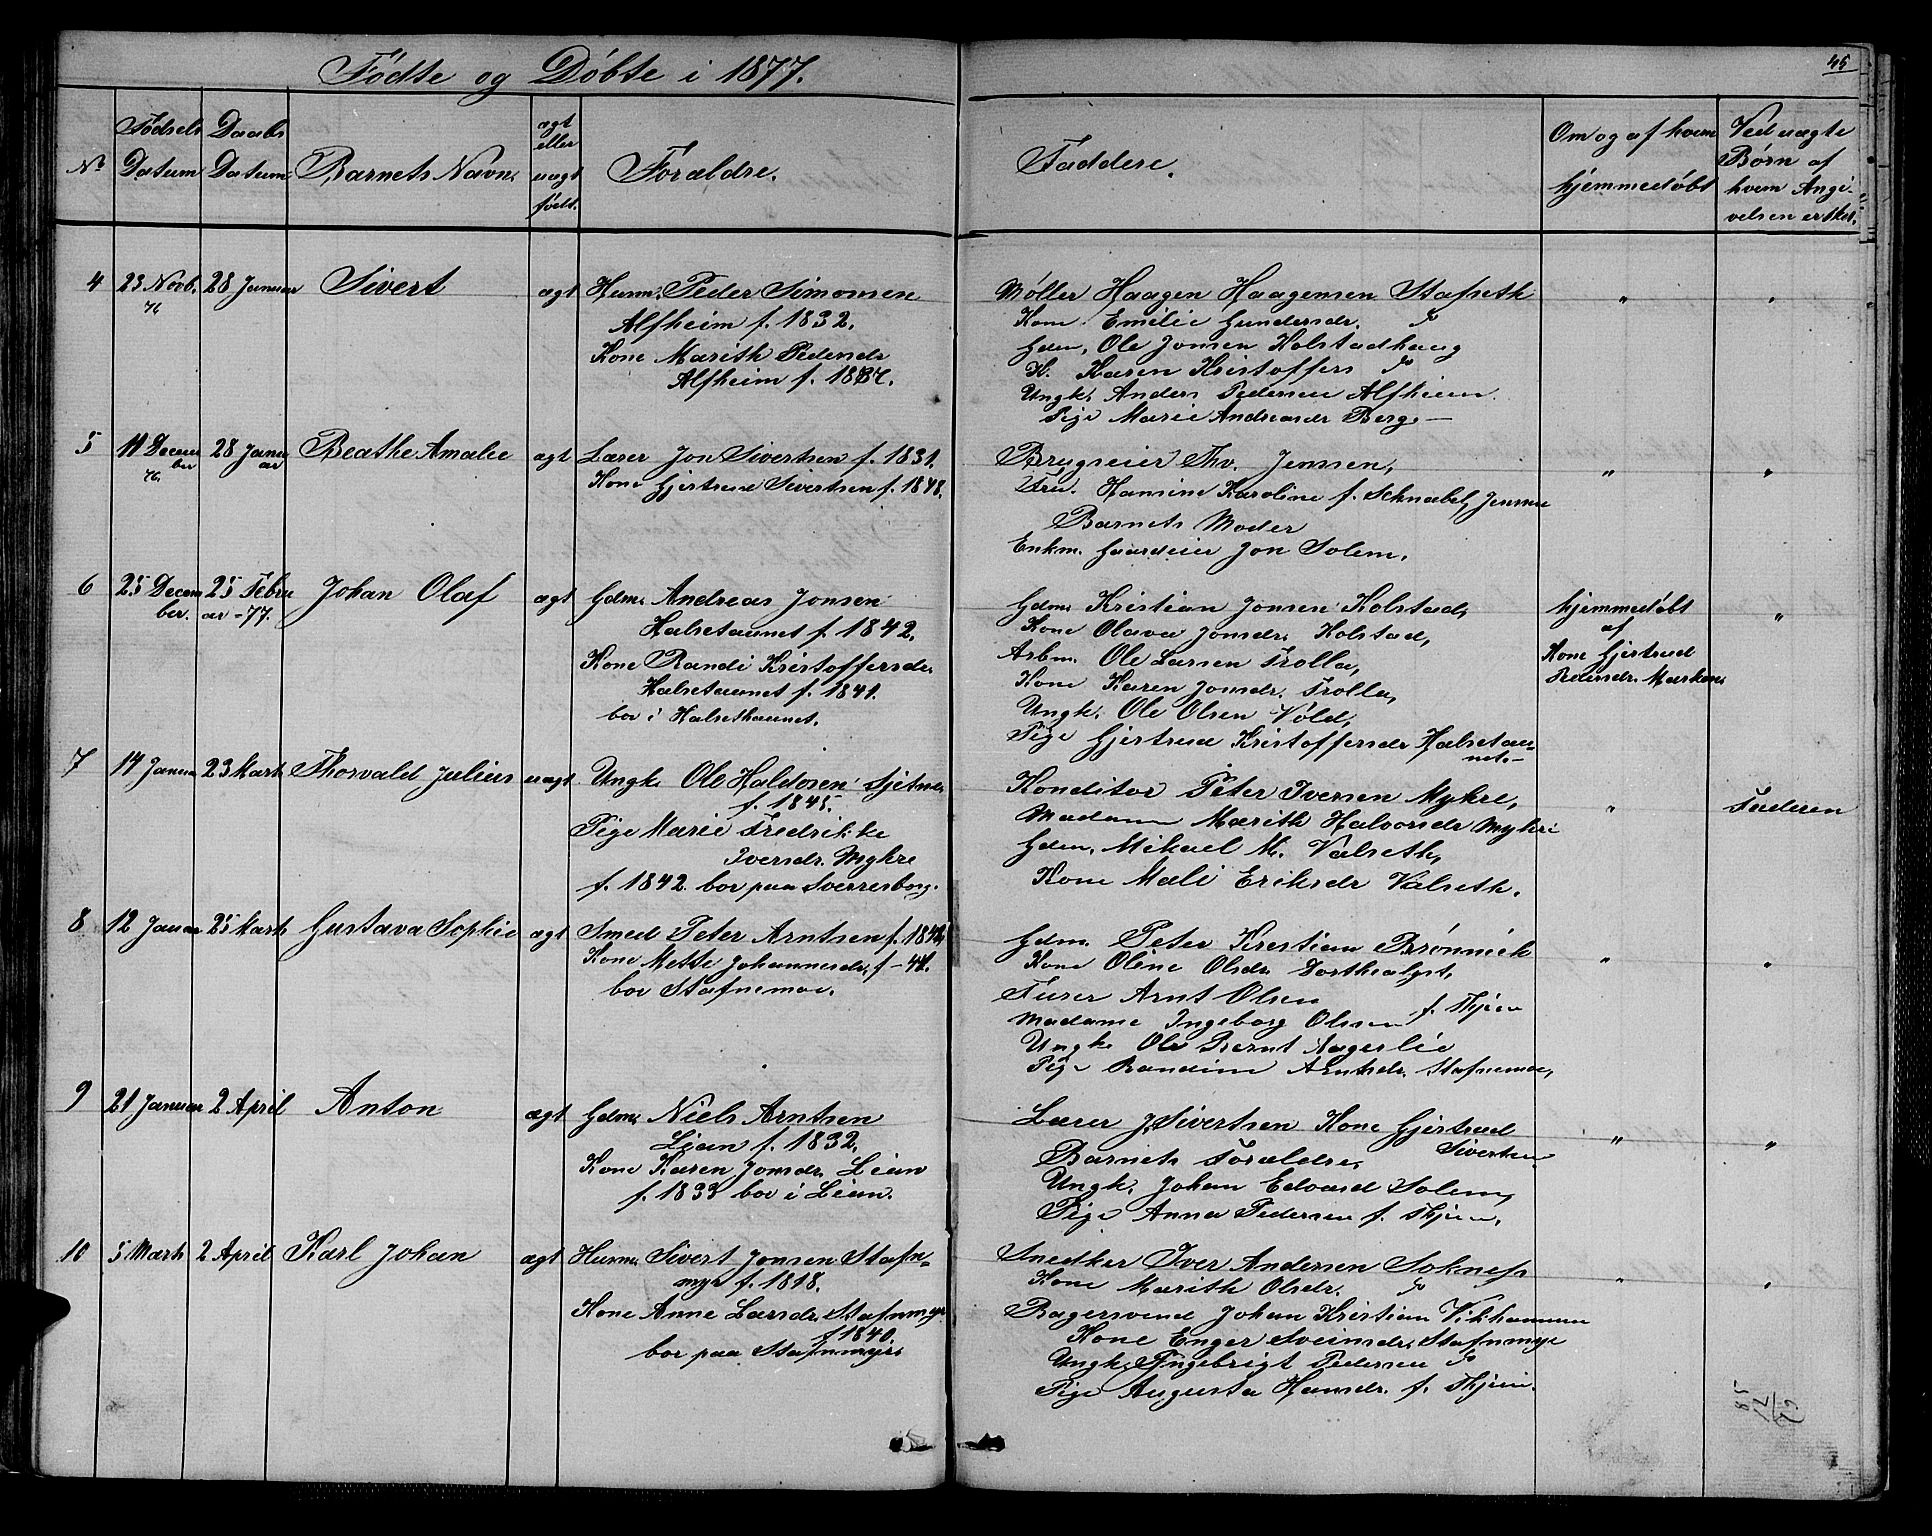 Fødte og Døbte i 1877.
45
No
Fødsels Datum
Daabs Datum
Barnets Navn.
ægt eller uægt født.
Forældre.
Faddere.
Om og af hvem hjemmedøbt
Ved uægte Børn af hvem Angivelsen er skeet.
4
23 Novb. 76
28 Januar
Sivert
ægt
Husm. Peder Simonsen
Alfheim f. 1832.
Kone Marith Pedersdr
Alfheim f.
Møller Haagen Haagensen Stafseth
Kone Emilie Gundersdr. do
Gdm. Ole Jonsen Kolstadhaug
K. Karen Kristoffers do
Ungk. Anders Pedersen Alfheim.
Pige Marie Andreasdr Berg
"
"
5
11 December 76.
28 Januar
Beathe Amalie
ægt
Lærer Jon Sivertsen f. 1831.
Kone Gjertrud Sivertsen f. 1848.
Brugseier Thv. Jenssen,
Fru. Hansine Karoline f. Schnabel, Jenssen
Barnets Moder
Enkm. Gaardeier Jon Solem.
"
"
6
25 December.
25 Februar -77.
Johan Olaf
ægt
Gdm. Andreas Jonsen
Halsetaunet f. 1842.
Kone Randi Kristoffersdr.
Halsetaunet f. 1841.
bor i Halsethaunet.
Gdm. Kristian Jonsen Kolstad,
Kone Olava Jonsdr. Kolstad,
Arbm. Ole Larsen Trolla,
Kone Karen Jonsdr. Trolla,
Ungk. Ole Olsen Vold,
Pige Gjertrud Kristoffersdr Halsetaunet.
hjemmedøbt
af
Kone Gjertrud
Pedersdr. Markens
"
7
14 Januar
23 Marts
Thorvald Julius
uægt
Ungk. Ole Haldosen Sjetne,
f. 1845.
Pige Marie Fredrikke
Iversdr. Myhre
f. 1842 bor paa Sverresborg.
Konditor Peter Iversen Myhre,
Madam Marith Halvorsdr Myhre
Gdm. Mikael M. Valseth,
Kone Mali Eriksdr Valseth.
"
Faderen
8
12 Januar
25 Marts
Gustava Sophie
ægt
Smed Peter Arntsen f.
Kone Mette Johannesdr. f -
bor Stafnemoe.
Gdm. Peter Kristian Brønnick
Kone Oline Olsdr. Dorthealyst,
Furer Arnt Olsen
Madame Ingeborg Olsen f. Thjem
Ungk. Ole Bernt Aagerlie
Pige Randine Arntsdr. Stafnemoe,
"
"
9
21 Januar
2 April
Anton
ægt
Gdm. Niels Arntsen
Lian f. 1832.
Kone Karen Jonsdr. Lian
f. 1833 bor i Lian.
Lærer J. Sivertsen Kone Gjertrud
Sivertsen
Barnets Forældre,
Ungk. Johan Edvard Solem,
Pige Anna Pedersen f. Thjem,
"
"
10
5 Marts
2 April
Karl Johan
ægt
Husm. Sivert Jonsen Stafnmyr f. 1818.
Kone Anne Larsdr. Stafnmyr
f 1840.
bor paa Stafnmyr
Snedker Iver Andersen Soknes
Kone Marith Olsdr. do
Bagersvend Johan Kristian Vikhammer
Kone Enger Sveinsdr. Stafnmyr
Ungk. Ingebrigt Pedersen do
Pige Augusta Hansdr. f. Thjem.
"
"